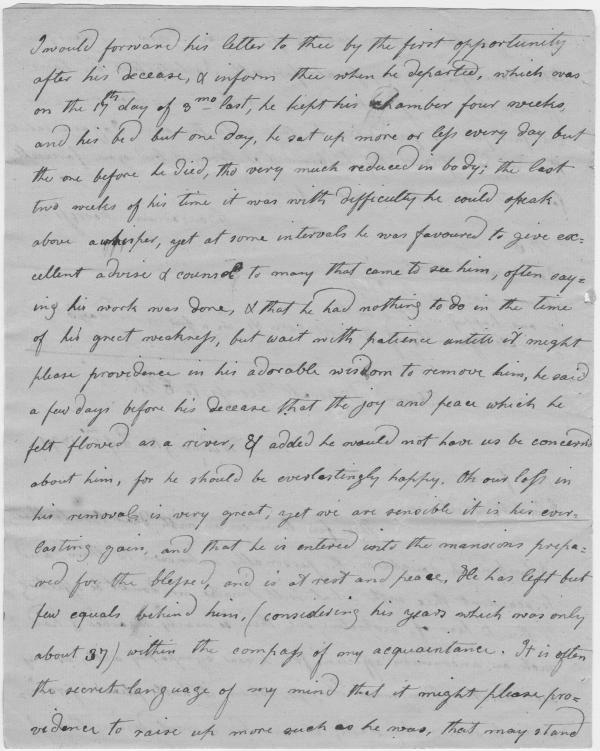 I would forward his letter to thee by the first opportunity
after his decease, & inform thee when he departed, which was
on the 17th day of 3 mo last, he kept his chamber four weeks,
and his bed but one day, he sat up more or less every day but
the one before he died, tho very much reduced in body; the last
two weeks of his time it was with difficulty he could speak
above a whisper, yet at some intervals he was favoured to give ex=
cellent advise & counsel to many that came to see him, often say=
ing his work was done, & that he had nothing to do in the time
of his great weakness, but wait with patience untill it might
please providence in his adorable wisdom to remove him, he said
a few days before his decease that the joy and peace which he
felt flowed as a river, & added he would not have us be concernd
about him, for he should be everlastingly happy. Oh our loss in
his removal is very great, yet we are sencible it is his ever-
lasting gain, and that he is entered into the mansions prepa=
red for the blessed, and is at rest and peace, He has left but
few equals behind him, (considering his years which was only
about 37) within the compass of my acquaintance. It is often
the secret language of my mind that it might please pro=
vidence to raise up more such as he was, that may stand